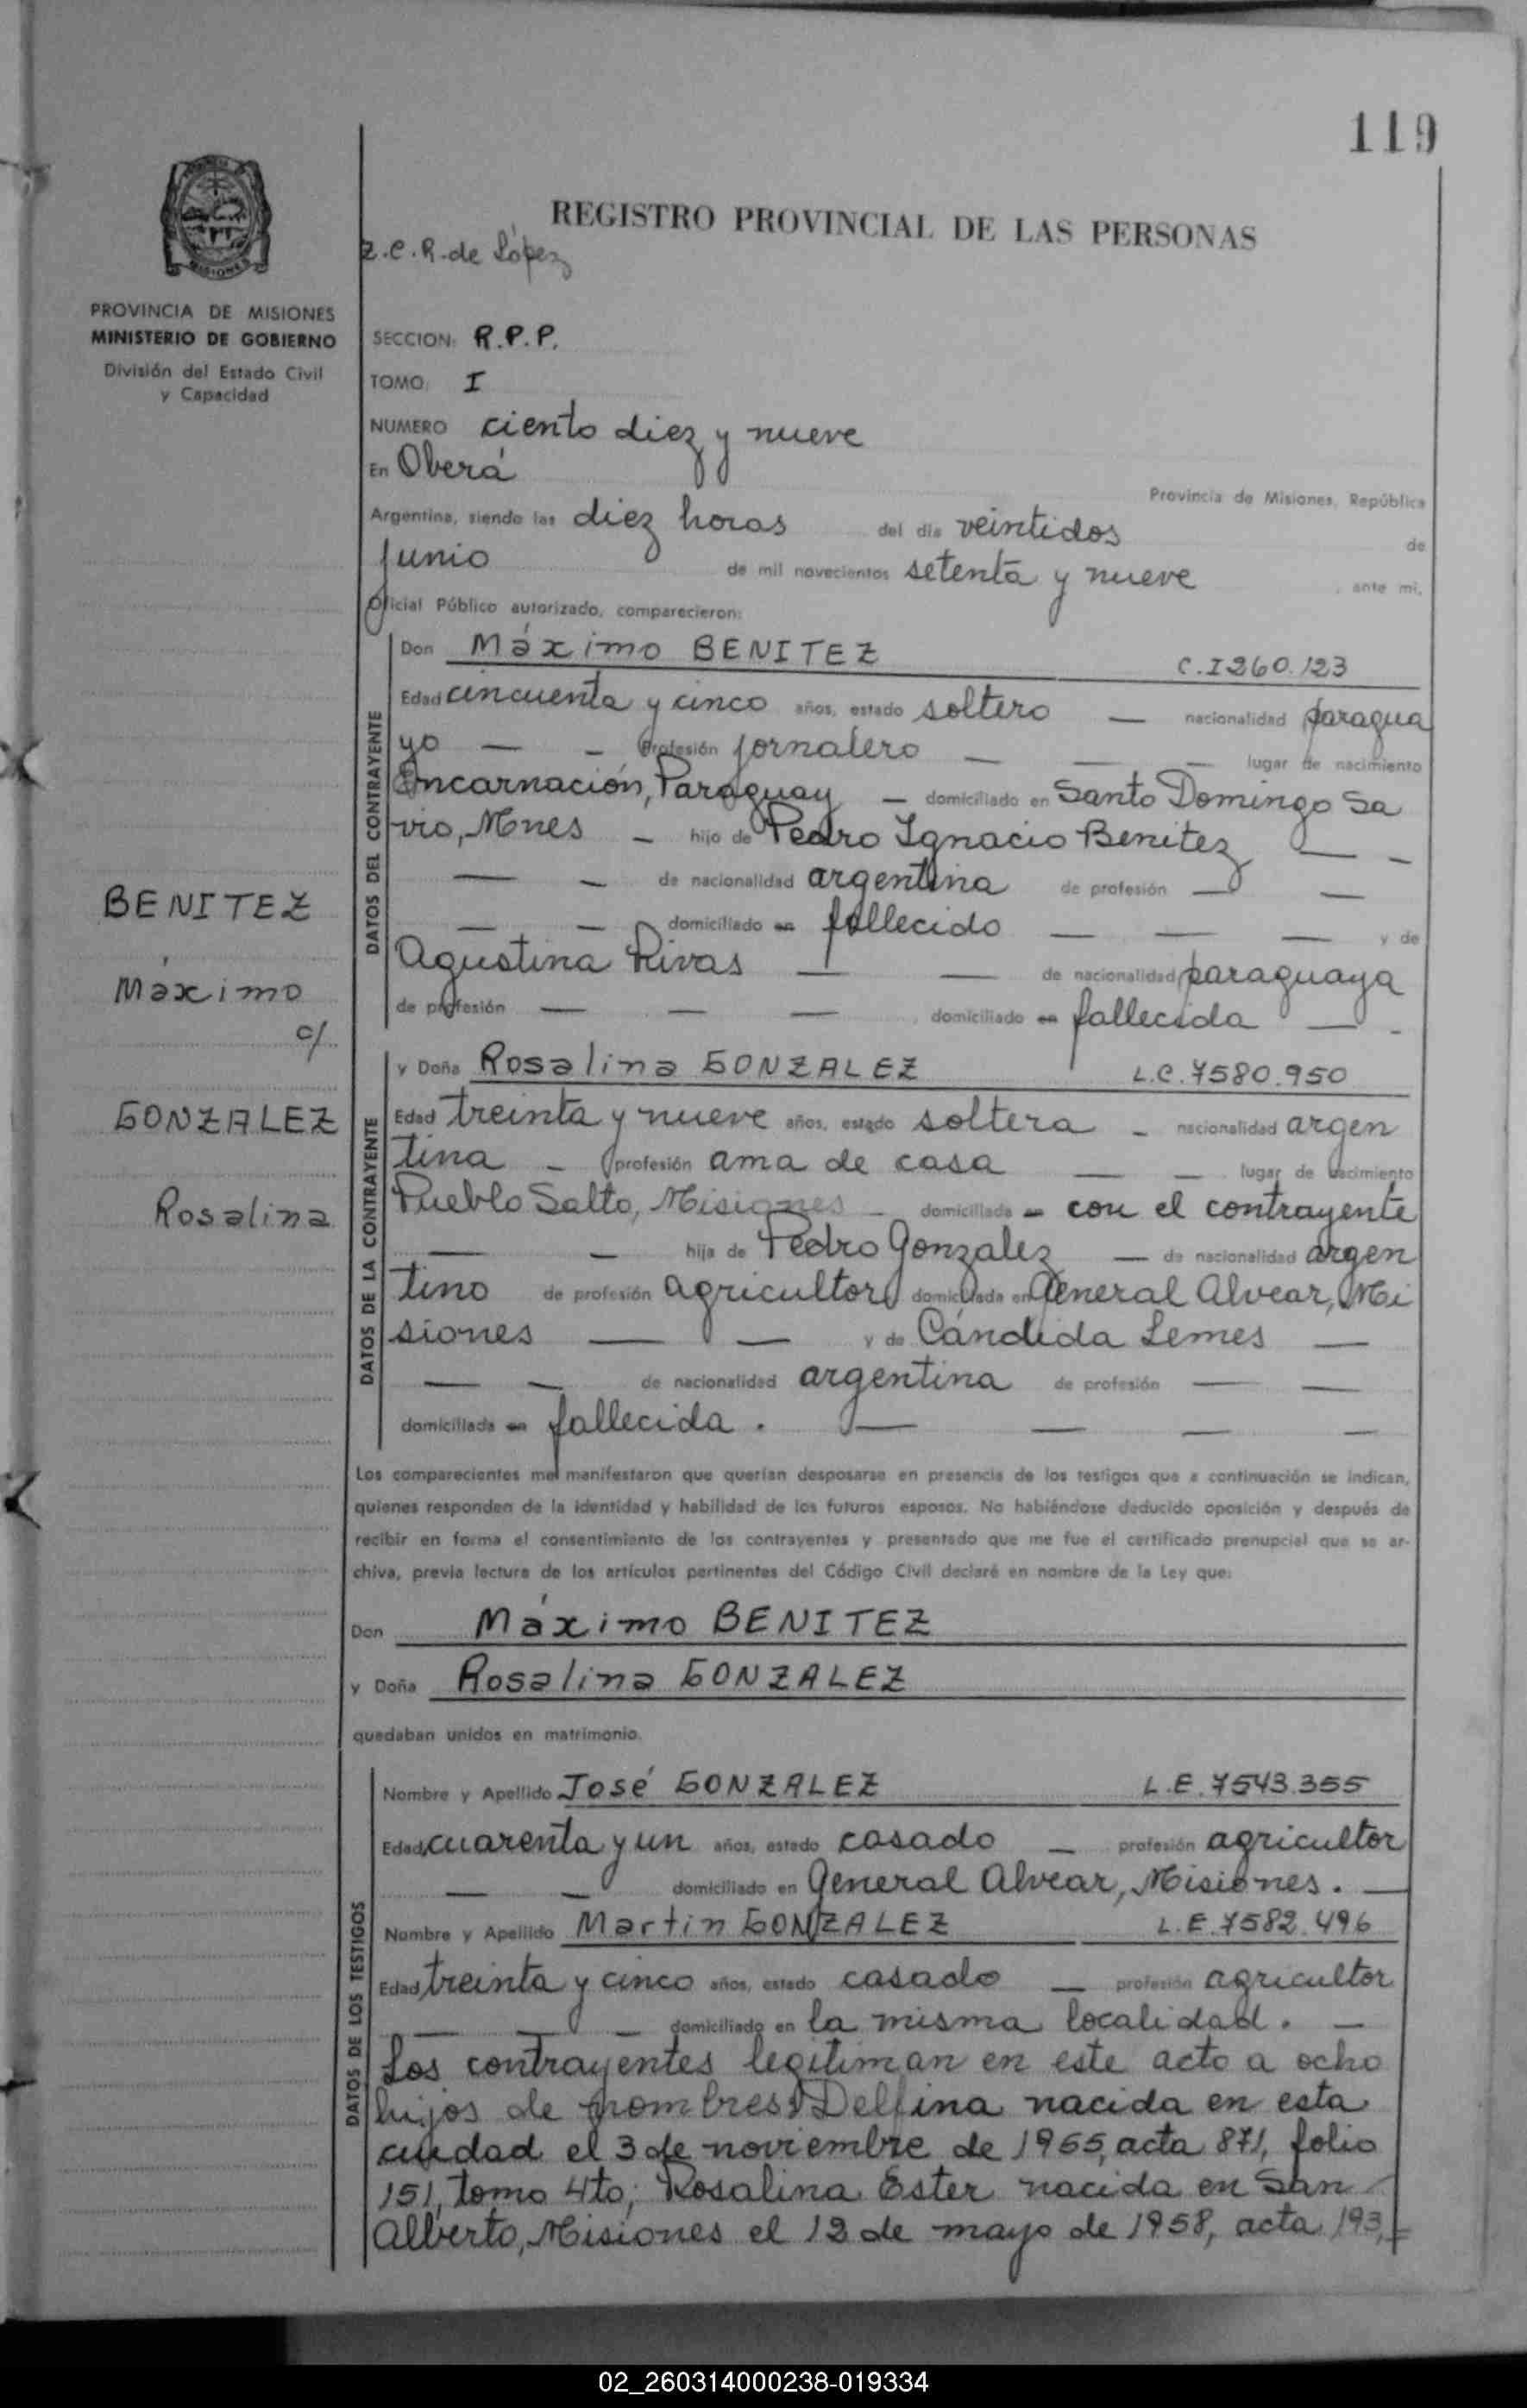 119
REGISTRO PROVINCIAL DE LAS PERSONAS
Z.C.R. de López
MISIONES
PROVINCIA DE MISIONES
MINISTERIO DE GOBIERNO
División del Estado Civil
y Capacidad
SECCION: R.P.P.
TOMO: I
NUMERO ciento diez y nueve
En Oberá
Provincia de Misiones, República
Argentina, siendo las diez horas del día veintidos de
junio de mil novecientos setenta y nueve, ante mi,
Oficial Público autorizado, comparecieron:
DATOS DEL CONTRAYENTE
Don Máximo BENITEZ C.I 260.123
Edad cincuenta y cinco años, estado soltero — nacionalidad paragua
yo — — Profesión jornalero — — — lugar de nacimiento
Encarnación, Paraguay — domiciliado en Santo Domingo Sa
vio, Mnes — hijo de Pedro Ignacio Benitez — —
— — de nacionalidad argentina de profesión — —
— — domiciliado en fallecido — — — y de
Agustina Rivas — — de nacionalidad paraguaya
de profesión — — — domiciliado en fallecida — -
BENITEZ
Máximo
c/.
GONZALEZ
Rosalina
DATOS DE LA CONTRAYENTE
y Doña Rosalina GONZALEZ L.C. 7580.950
Edad treinta y nueve años, estado soltera — nacionalidad argen
tina — profesión ama de casa — — lugar de nacimiento
Pueblo Salto, Misiones — domiciliada en con el contrayente
— — hija de Pedro Gonzalez — de nacionalidad argen
tino de profesión agricultor domiciliada en General Alvear, Mi
siones — — y de Cándida Lemes —
— — de nacionalidad argentina de profesión — —
domiciliada en fallecida. — — — —
Los comparecientes me manifestaron que querían desposarse en presencia de los testigos que a continuación se indican,
quienes responden de la identidad y habilidad de los futuros esposos. No habiéndose deducido oposición y después de
recibir en forma el consentimiento de los contrayentes y presentado que me fue el certificado prenupcial que se ar-
chiva, previa lectura de los artículos pertinentes del Código Civil declaré en nombre de la Ley que:
Don Máximo BENITEZ
y Doña Rosalina GONZALEZ
quedaban unidos en matrimonio.
DATOS DE LOS TESTIGOS
Nombre y Apellido José GONZALEZ L.E. 7543.355
Edad cuarenta y un años, estado casado — profesión agricultor
— — domiciliado en General Alvear, Misiones. —
Nombre y Apellido Martin GONZALEZ L.E. 7582.496
Edad treinta y cinco años, estado casado — profesión agricultor
— — — domiciliado en la misma localidad. —
Los contrayentes legitiman en este acto a ocho
hijos de nombres: Delfina nacida en esta
ciudad el 3 de noviembre de 1955, acta 871, folio
151, tomo 4to; Rosalina Ester nacida en San
Alberto, Misiones el 12 de mayo de 1958, acta 193,=
02_260314000238-019334